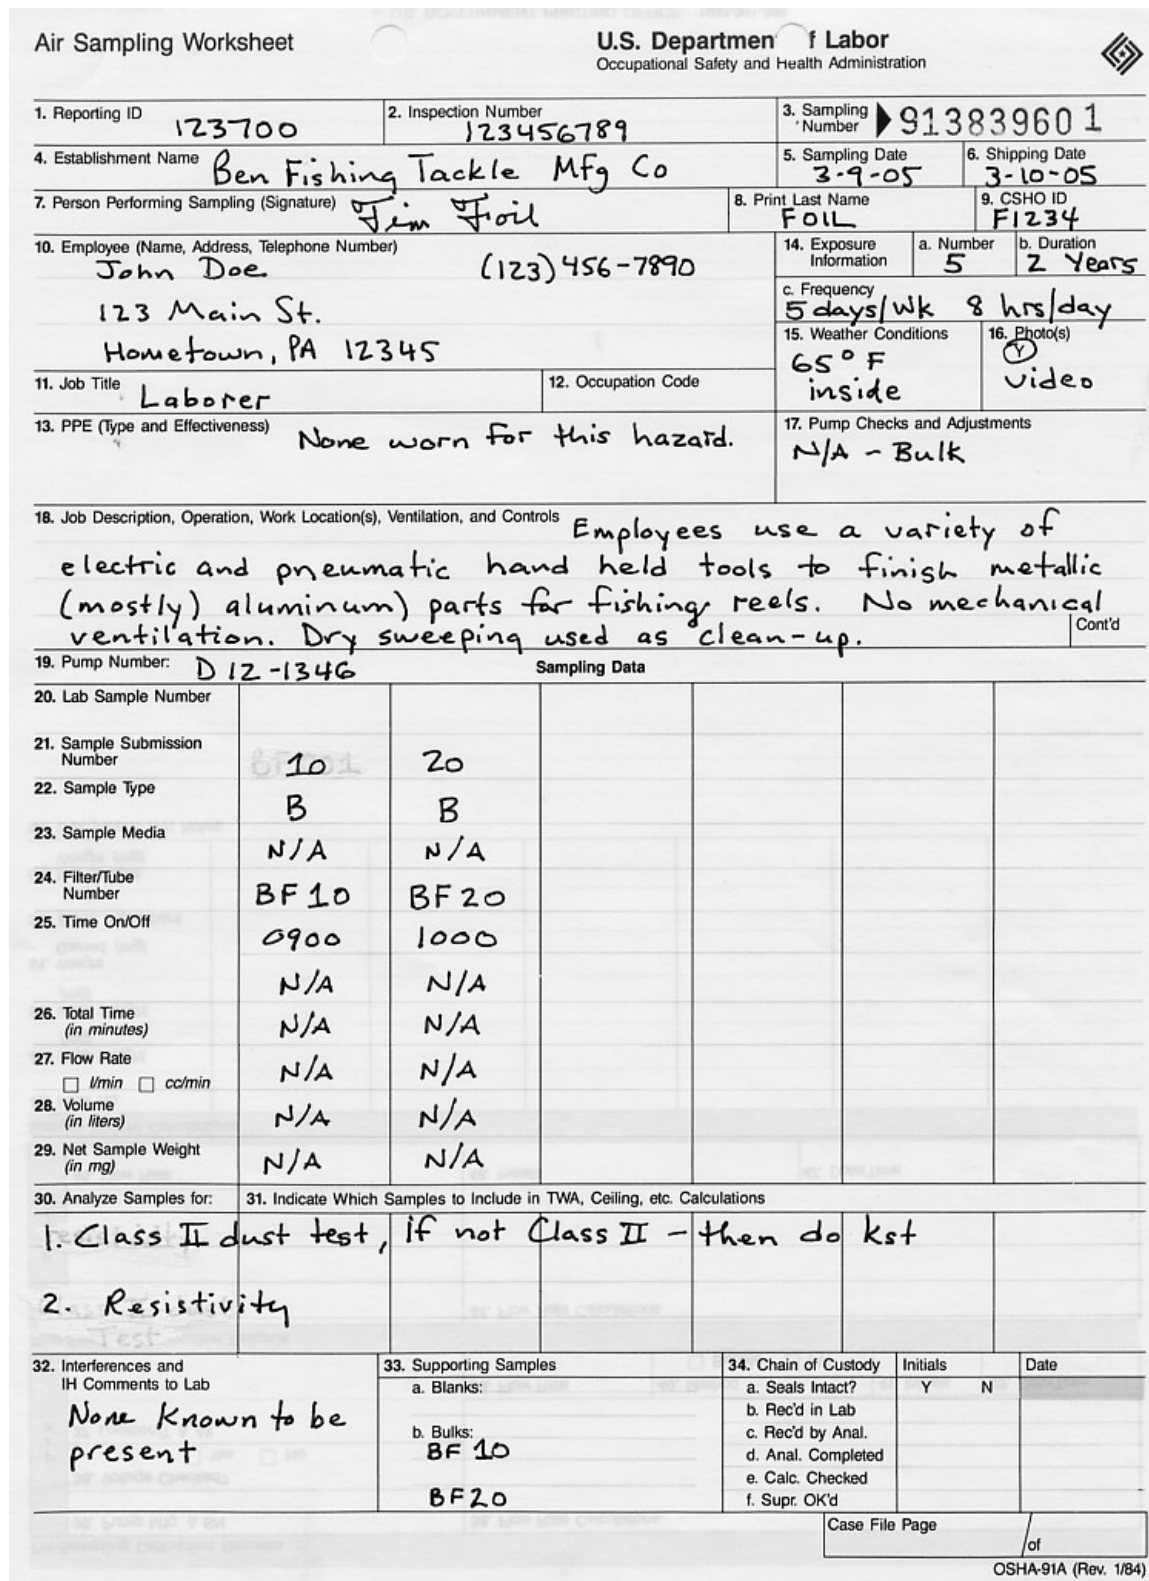 Air Sampling Worksheet
U.S. Departmen f Labor
Occupational Safety and Health Administration
1. Reporting ID
123700
2. Inspection Number
123456789
3. Sampling Number
913839601
4. Establishment Name
Ben Fishing Tackle Mfg Co
5. Sampling Date
3-9-05
6. Shipping Date
3-10-05
7. Person Performing Sampling (Signature)
Tim Foil
8. Print Last Name
FOIL
9. CSHO ID
F1234
10. Employee (Name, Address, Telephone Number)
John Doe (123) 456-7890
123 Main St.
Hometown, PA 12345
14. Exposure Information
a. Number
5
b. Duration
2 Years
c. Frequency
5 days/wk 8 hrs/day
11. Job Title
Laborer
12. Occupation Code
15. Weather Conditions
65° F
inside
16. Photo(s)
Y
video
13. PPE (Type and Effectiveness)
None worn for this hazard.
17. Pump Checks and Adjustments
N/A - Bulk
18. Job Description, Operation, Work Location(s), Ventilation, and Controls
Employees use a variety of
electric and pneumatic hand held tools to finish metallic
(mostly) aluminum) parts for fishing reels. No mechanical
ventilation. Dry sweeping used as clean-up.
Cont'd
19. Pump Number: D 12-1346
Sampling Data
20. Lab Sample Number
21. Sample Submission Number
10 20
22. Sample Type
B B
23. Sample Media
N/A N/A
24. Filter/Tube Number
BF 10 BF 20
25. Time On/Off
0900 1000
N/A N/A
26. Total Time (in minutes)
N/A N/A
27. Flow Rate
l/min cc/min
N/A N/A
28. Volume (in liters)
N/A N/A
29. Net Sample Weight (in mg)
N/A N/A
30. Analyze Samples for:
31. Indicate Which Samples to Include in TWA, Ceiling, etc. Calculations
1. Class II dust test, if not Class II - then do kst
2. Resistivity
32. Interferences and IH Comments to Lab
None known to be
present
33. Supporting Samples
a. Blanks:
b. Bulks:
BF 10
BF20
34. Chain of Custody Initials Date
a. Seals Intact? Y N
b. Rec'd in Lab
c. Rec'd by Anal.
d. Anal. Completed
e. Calc. Checked
f. Supr. OK'd
Case File Page
/of
OSHA-91A (Rev. 1/84)